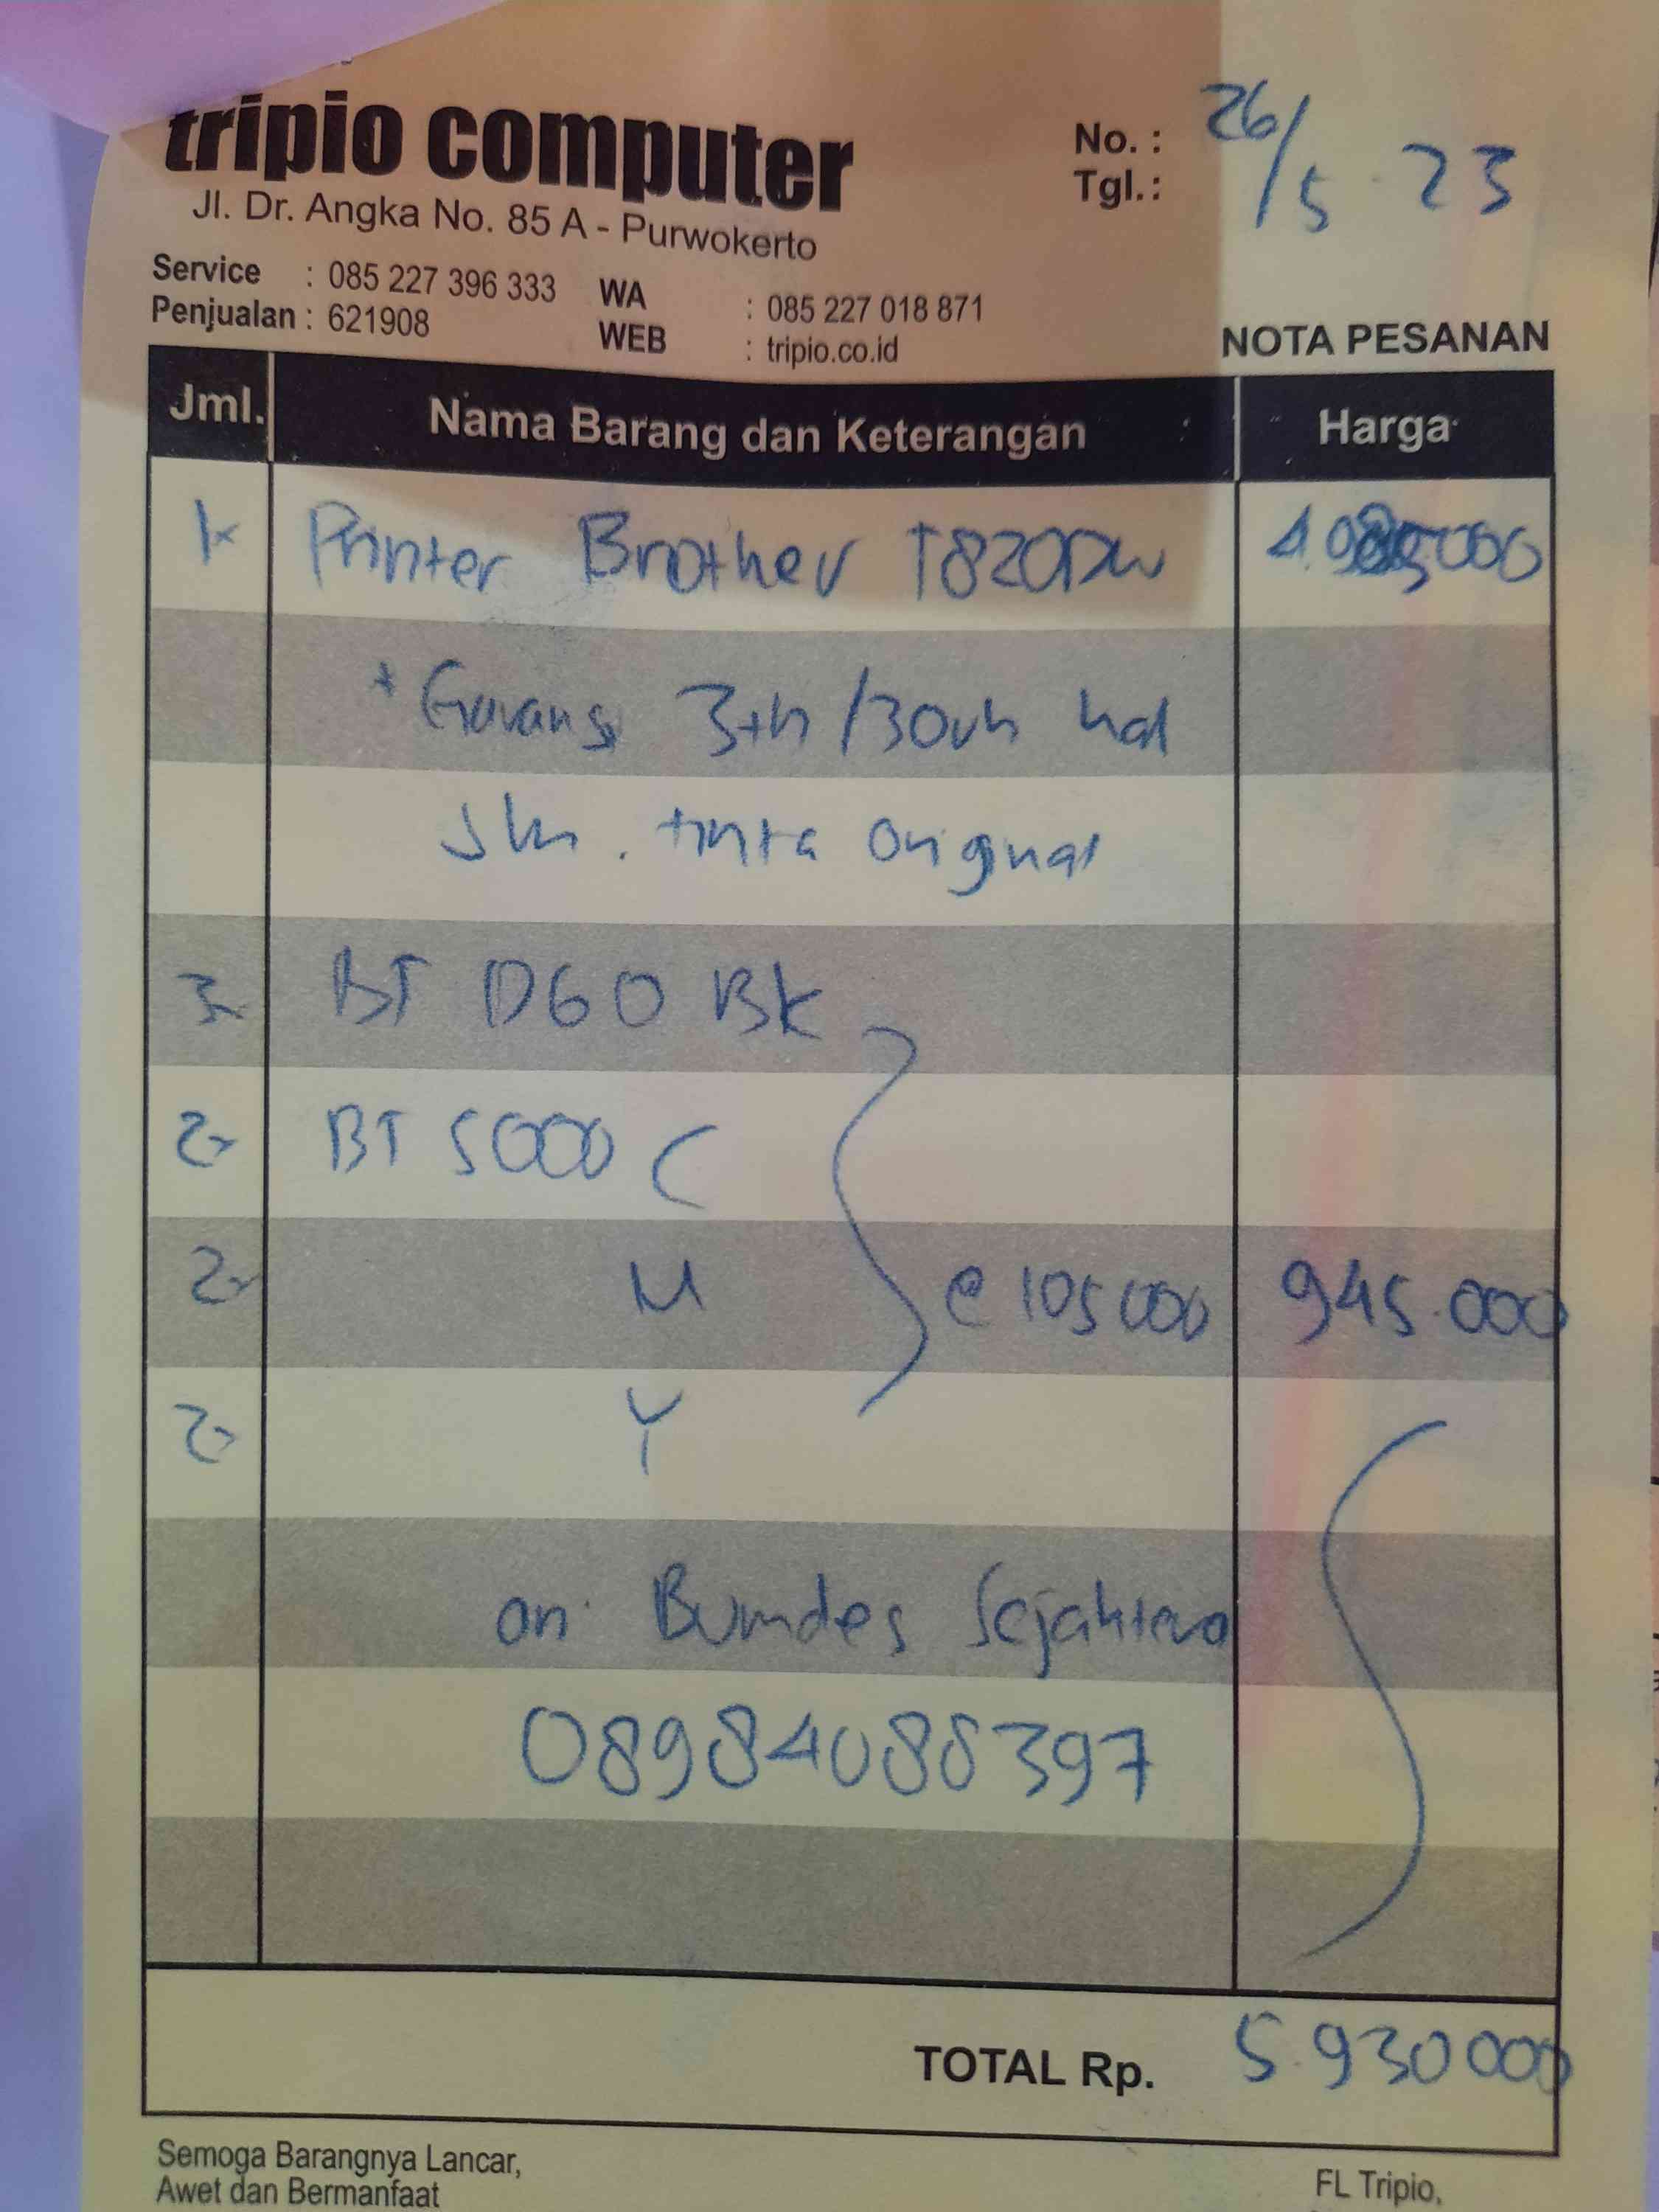 tripio computer
Jl. Dr. Angka No. 85 A - Purwokerto
No. :
Tgl. : 26/5 23
Service : 085 227 396 333 WA : 085 227 018 871
Penjualan : 621908 WEB : tripio.co.id
NOTA PESANAN
Jml. Nama Barang dan Keterangan Harga
1x Printer Brother T820DW 4.985000
+ Garansi 3th / 30rb hal
tinta Original
3x BT D60 BK
2x BT 5000 C
2x M @ 105000 945.000
2x Y
an. Bumdes Sejahtera
08984088397
TOTAL Rp. 5.930000
Semoga Barangnya Lancar,
Awet dan Bermanfaat
FL Tripio,